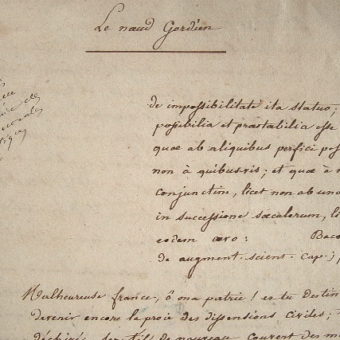 Le nœud Gordien
de impossibilitate ita statuo;
possibilia et præstabilia esse
quæ ab aliquibus perfici pos
non à quibusvis; et quæ à
conjunctim, licet non ab uno
in successione sæcalorum, li
eodem ævo: Baco
de augment. scient. Cap.
Malheureuse france, ô ma patrie! es tu destin
devenir encore la proie des dissensions civiles;
de nouveau courent